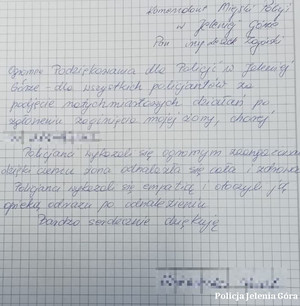 Komendant Miejski Policji
w Jeleniej Górze
Pan insp.
Ogromne Podziękowania dla Policji w Jeleniej
Górze - dla wszystkich policjantów za
podjęcie natychmiastowych działań po
zgłoszeniu zaginięcia mojej żony, chorej
Policjanci wykazali się ogromnym zaangażowaniem
dzięki czemu żona odnalazła się cała i zdrowa
Policjanci wykazali się empatią i otoczyli ją
opieką zaraz po odnalezieniu
Bardzo serdecznie dziękuję
Policja Jelenia Góra